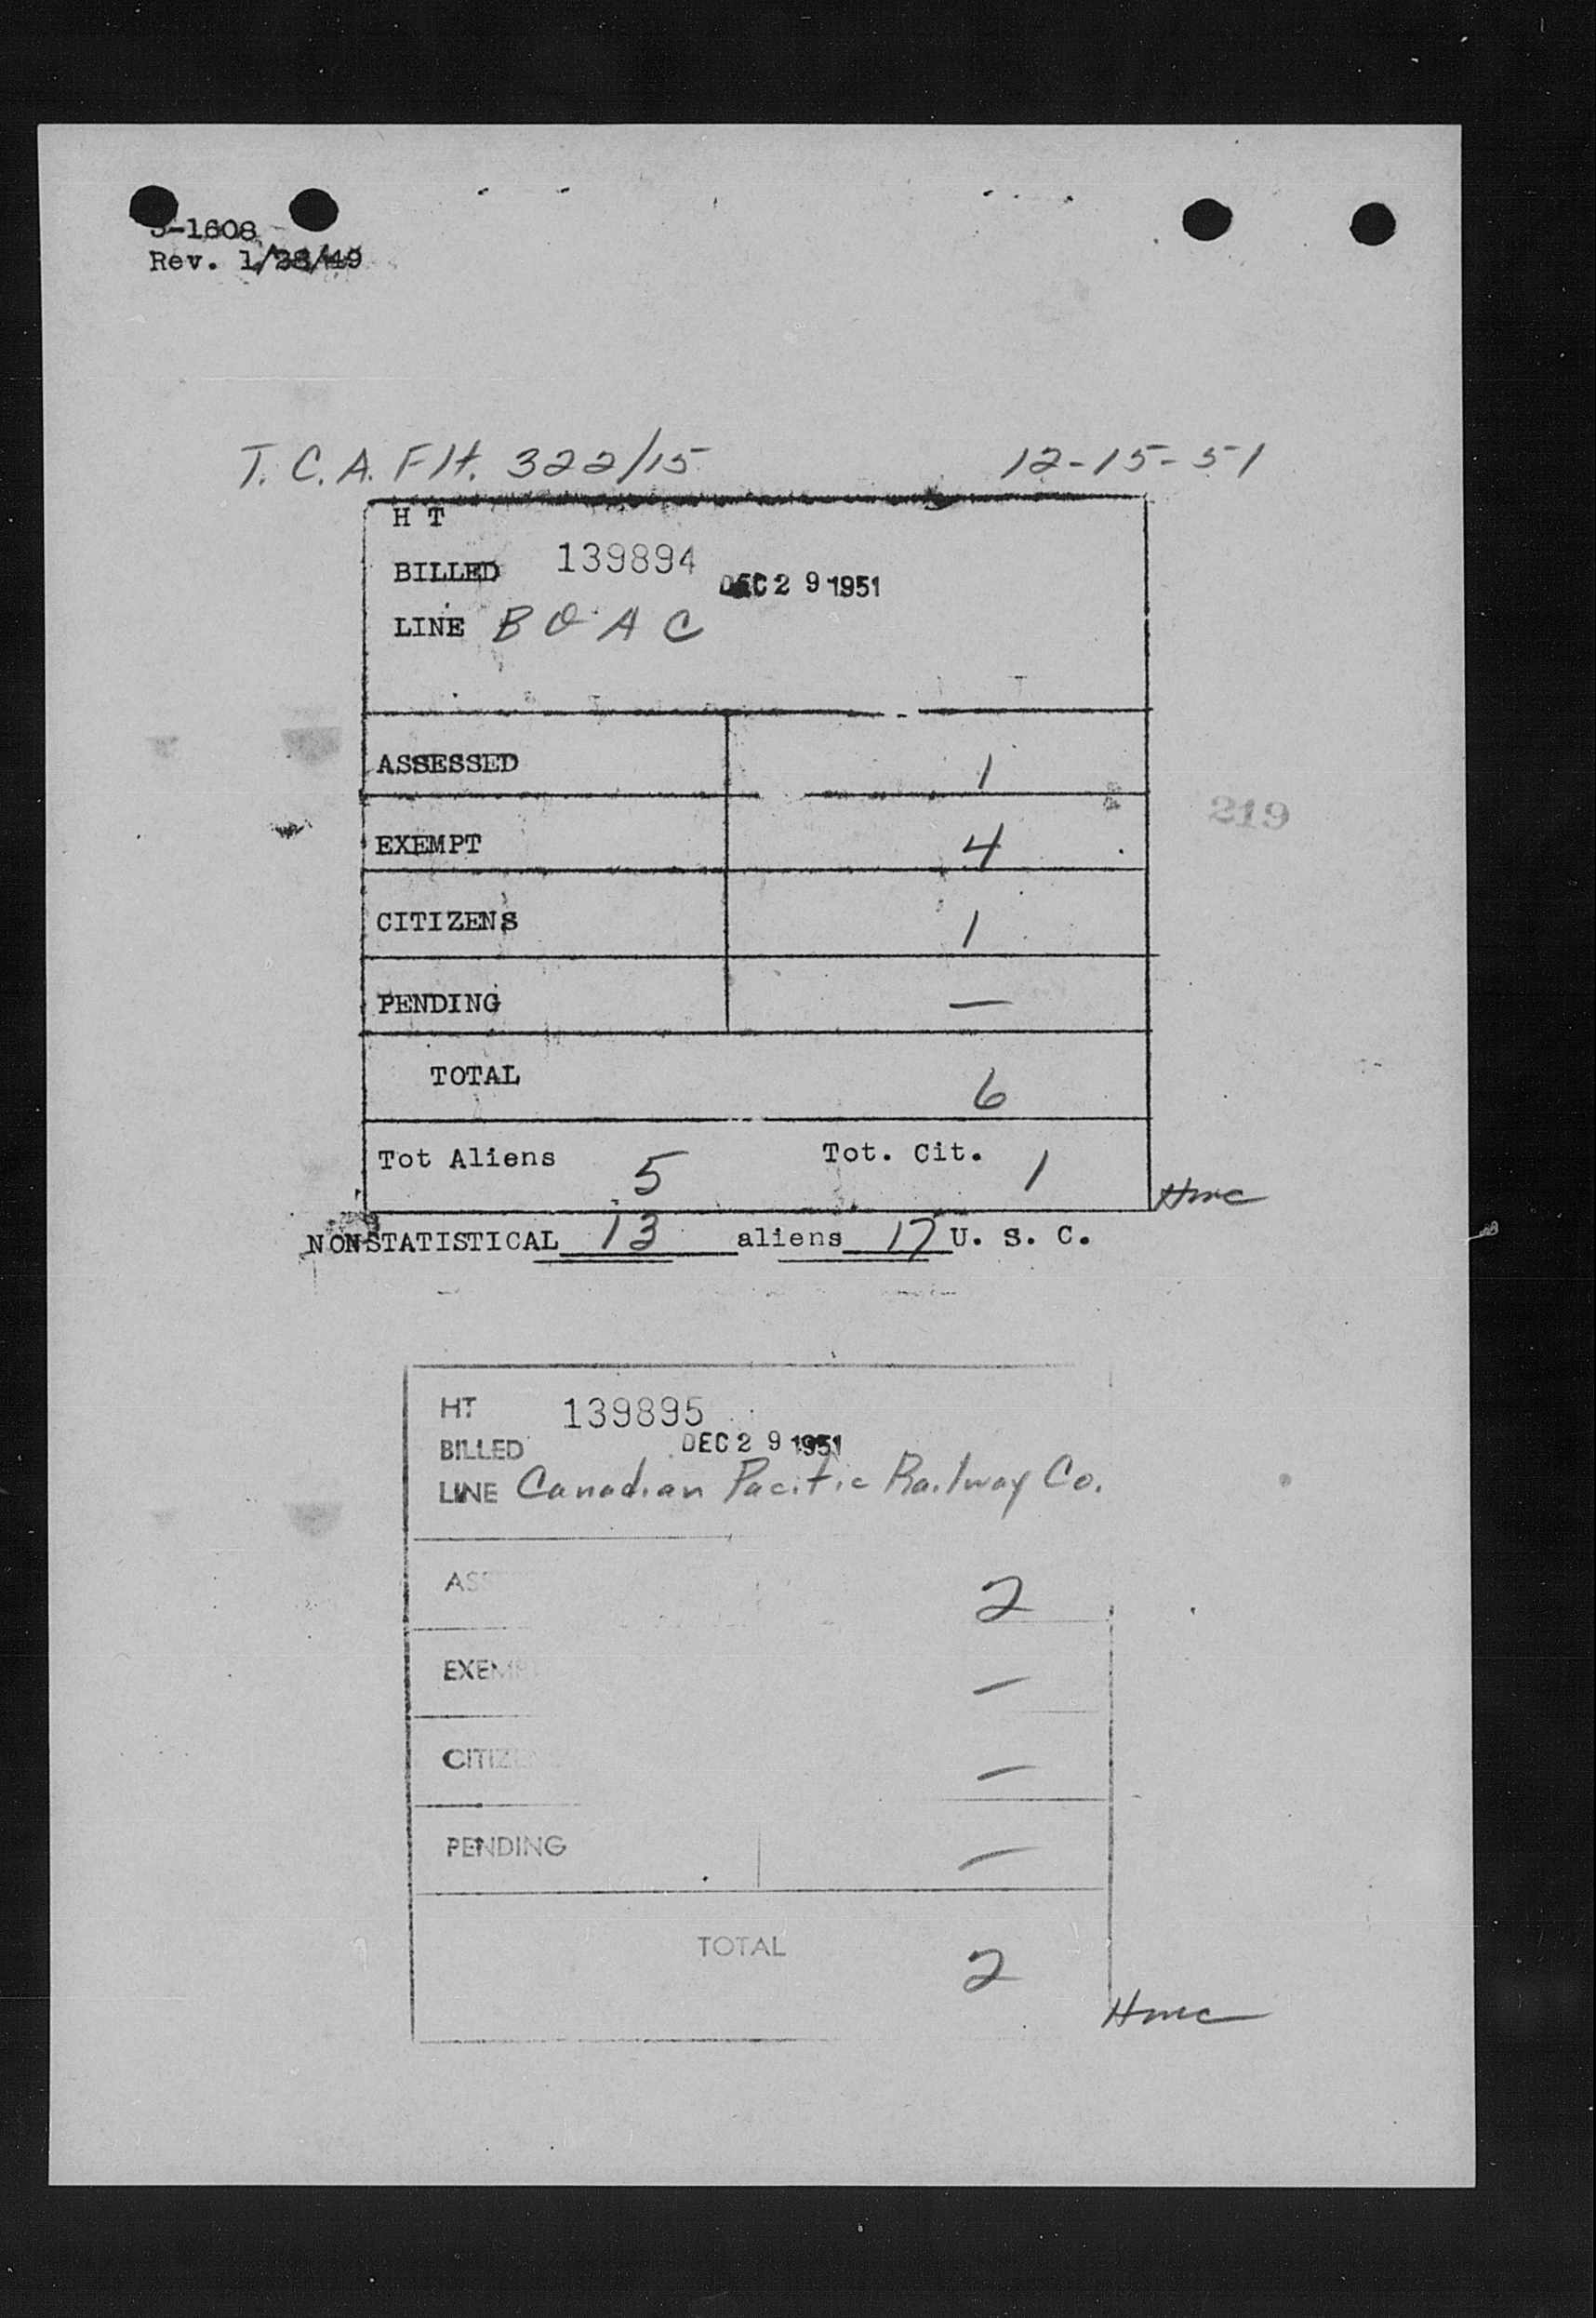 -1608
Rev. 1/28/49
T. C. A. Flt. 322/15 12-15-51
H T
BILLED 139894 DEC 29 1951
LINE B O A C
ASSESSED 1
219
EXEMPT 4
CITIZENS 1
PENDING —
TOTAL 6
Tot Aliens 5 Tot. Cit. 1
Hmc
NONSTATISTICAL 13 aliens 17 U. S. C.
HT 139895
BILLED DEC 29 1951
LINE Canadian Pacific Railway Co.
ASS 2
EXEMPT —
CITIZEN —
PENDING —
TOTAL 2
Hmc